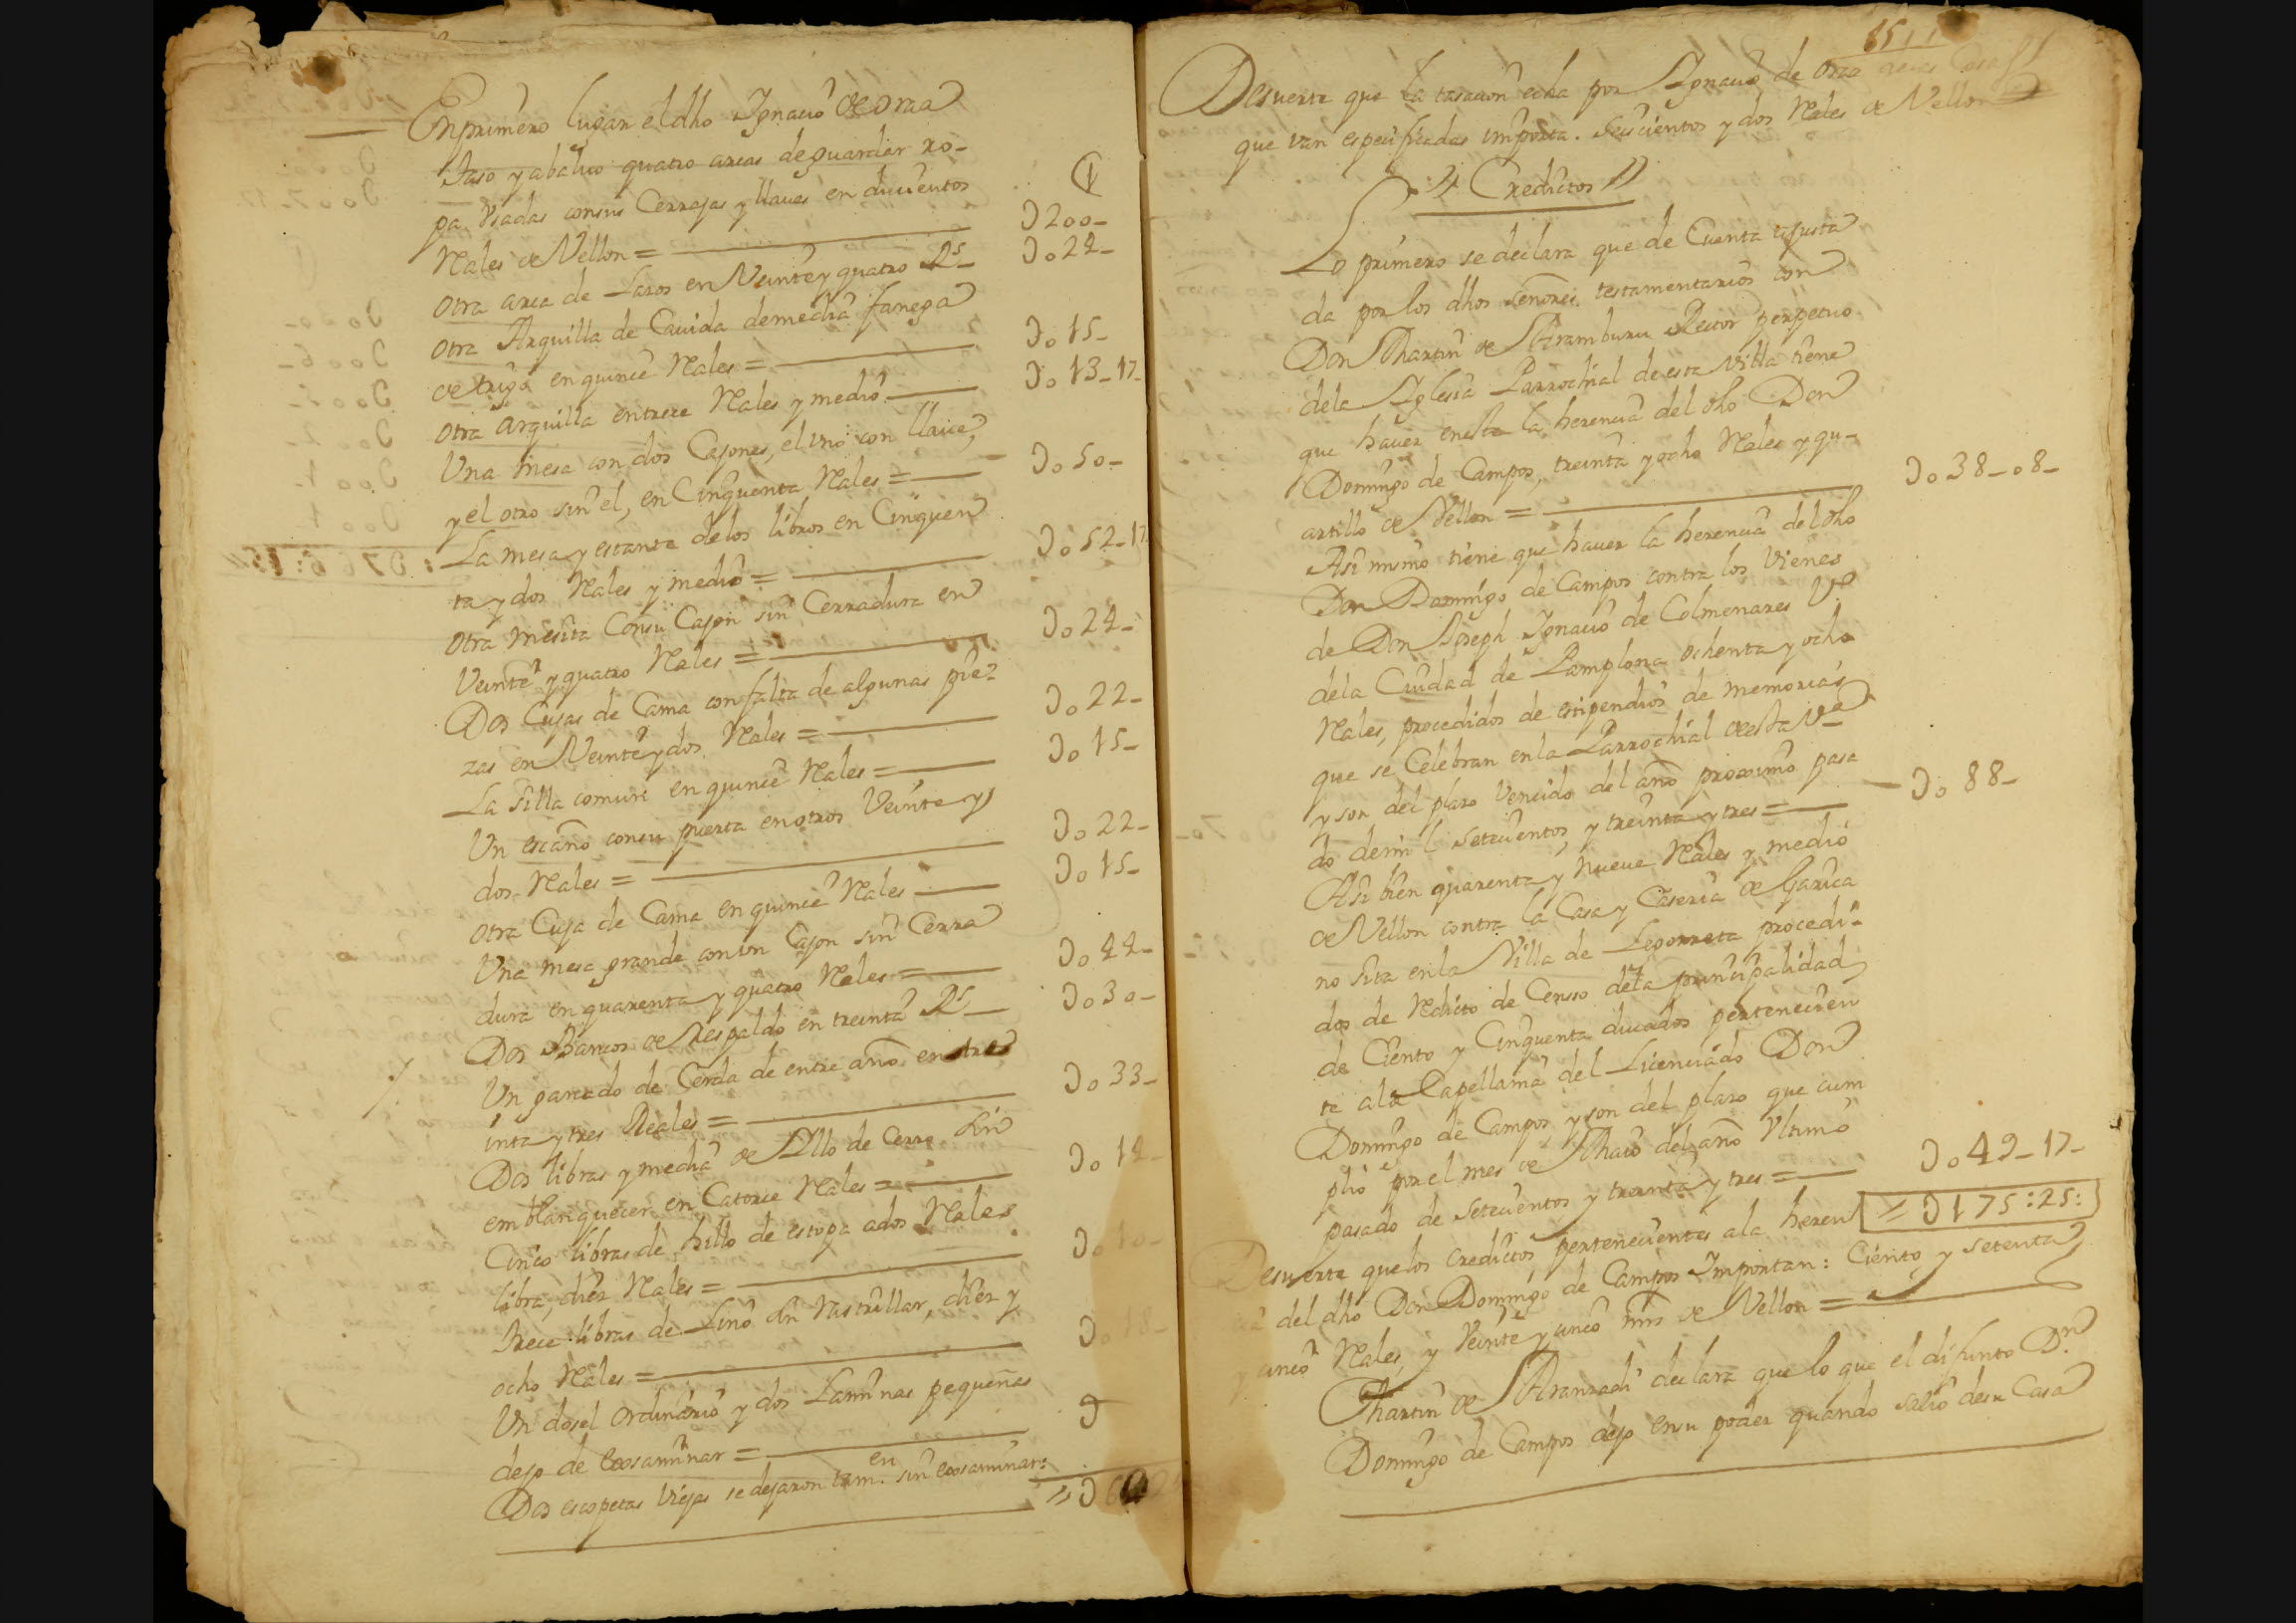 Enprimero lugar el dho Ignacio de oraa
Taso y abaluo quatro arcas deguardar ro-
pa Vsadas consus Cerrajas y llaues en ducientos
Rales de Vellon = D200-
Otra arca de Laros en Veinte y quatro Rs- Do24-
Otra Arquilla de Cauida demedia fanega
de trigo en quince Rales = Do15-
Otra arquilla entrece Rales y medio Do13-17-
Una mesa con dos Cajones, el Vno con llaue,
y el otro sin el, en Cinquenta Rales = Do50-
La mesa y estante delos libros en Cinquen
ta y dos Rales y medio = Do52-17
Otra mesita Consu Cajon sin Cerradura en
Veinte y quatro Rales = Do24-
Dos Cujas de Cama con falta de algunas pie-
zas en Veinte y dos Rales = Do22-
La silla comun en quince Rales = Do15-
Un escaño consu puerta en otros Veinte y
dos Rales = Do22-
Otra Cuja de Cama en quince Rales Do15-
Una mesa grande con un Cajon sin Cerra
dura en quarenta y quatro Rales = Do44-
Dos Bancos de Respaldo en treinta Rs Do30-
Un ganado de Cerda de entre año en tre
inta y tres Reales = Do33-
Dos libras y media de Illo de Cerro sin
emblanquecer en Catorce Rales = Do14-
Cinco libras de hillo de estopa a dos Rales
libra, diez Rales = Do10-
Trece libras de Lino sin Rastrillar, diez y
ocho Rales = Do18-
Un dosel Ordinario y dos Laminas pequeñas
dejo de exsaminar = D
Dos escopetas Viejas se dejaron tam.en sin exsaminar:
Desuerte que la tasacion echa por Ignacio de oraa
que van especificadas importa. Seiscientos y dos Rales de Vellon
Credictos
Lo primero se declara que de Cuenta ajusta
da por los dhos señores testamentarios con
Don Martin de Aramburu Rector perpetuo
dela Iglesia Parrochial de esta Villa tiene
que hauer enesta la herencia del dho Don
Domingo de Campos, treinta y ocho Rales y qu-
artillo de Vellon = Do38-08-
Asi mismo tiene que hauer la herencia del dho
Don Domingo de Campos contra los Vienes
de Don Joseph Ignacio de Colmenares Vº
dela Ciudad de Pamplona ochenta y ocho
Rales, procedidos de estipendios de memorias
que se Celebran en la Parrochial desta Vª
y son del plazo Vencido del año proximo pasa
do demil setecientos y treinta y tres = Do88-
Asi bien quarenta y nueue Rales y medio
de Vellon contra la Casa y Caseria de Garica
no sita en la Villa de Legorreta procedi-
dos de Redito de Censso dela principalidad
de Ciento y Cinquenta ducados pertenecien
te ala Capellania del Licenciado Don
Domingo de Campos, y son del plazo que cum
plio por el mes de Maio del año Vltimo
pasado de setecientos y treinta y tres = Do49-17-
Desuerte que los Credictos pertenecientes ala heren = D175:25:
cia del dho Don Domingo de Campos Importan: Ciento y setenta
y cinco Rales, y Veinte y cinco mrs de Vellon =
Martin de Aranzadi declara que lo que el difunto Dn
Domingo de Campos dejo ensu poder quando salio desu Casa